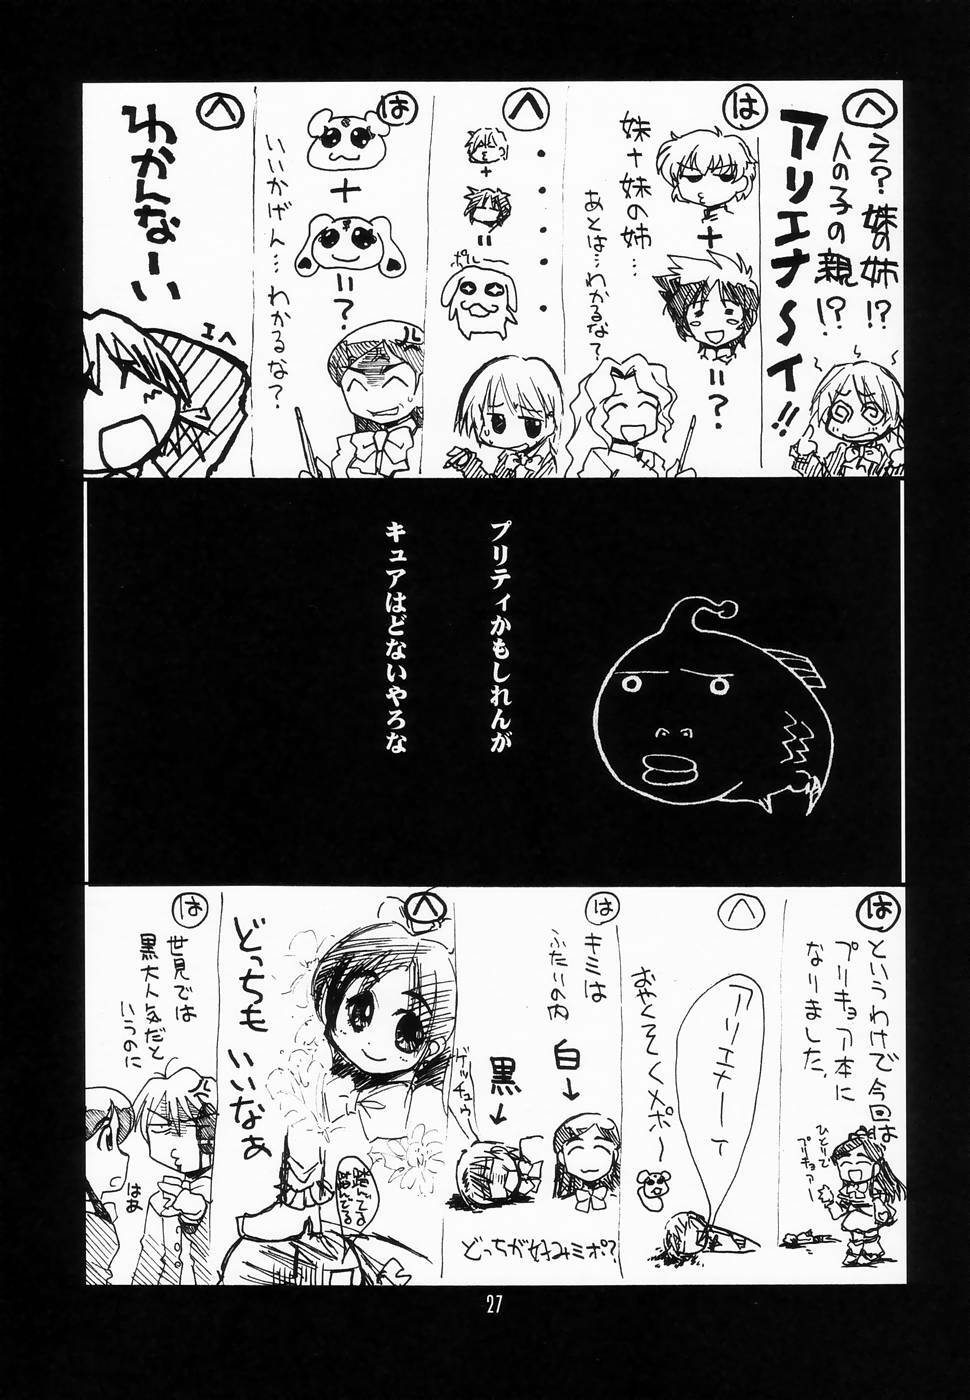 へ
え?妹の姉!?
人の子の親!?
アリエナ～イ!!
は
+
=?
妹+妹の姉…
あとは…わかるな?
へ
・・・・・
+
=
ポルー
は
+
=?
いいかげん…わかるな?
へ
わかんなーい
エへ
プリティかもしれんが
キュアはどないやろな
は
というわけで今回は
プリキュア本に
なりました。
ひとりで
プリキュアー
へ
アリエナーイ
おやくそくメポ～
は
キミは
ふたりの内
白→
黒→
ゲッチュウ
どっちが好みミポ?
へ
どっちも
いいなぁ
踏んでる
踏んでる
は
世見では
黒大人気だと
いうのに
はぁ
27